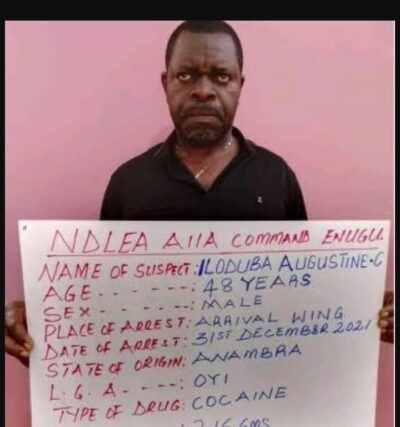 NDLEA AIIA COMMAND ENUGU
NAME OF SUSPECT: ILODUBA AUGUSTINE·C
AGE - - - - - -: 48 YEARS
SEX - - - - - -: MALE
PLACE OF ARREST: ARRIVAL WING
DATE OF ARREST: 31ST DECEMBER 2021
STATE OF ORIGIN: ANAMBRA
L. G. A - - - -: OYI
TYPE OF DRUG: COCAINE
GMS